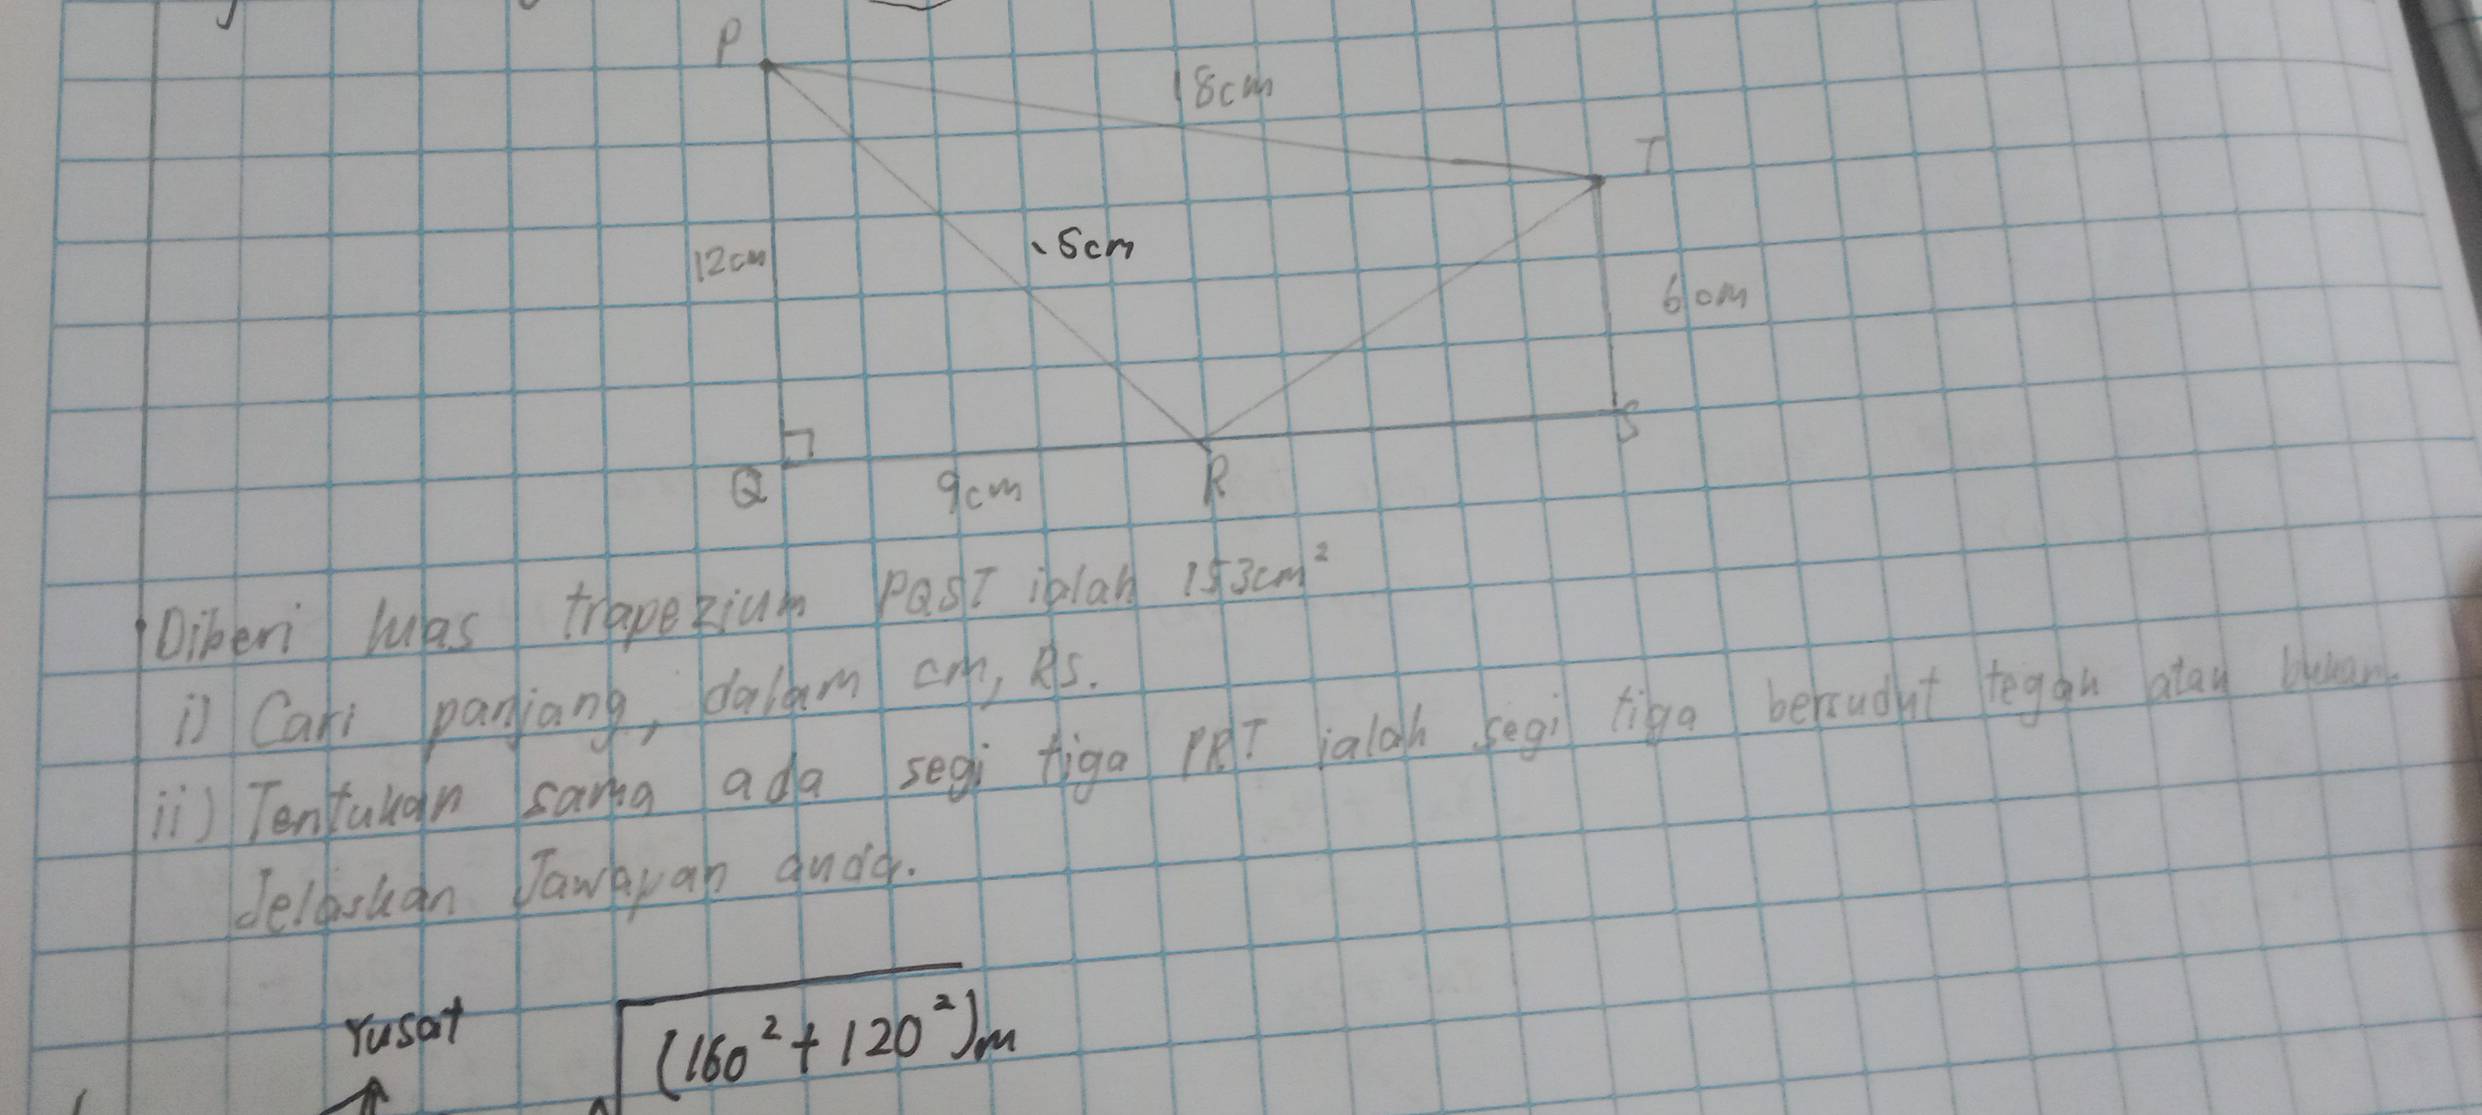 P
18cm
T
12cm
5cm
6cm
Q
9cm
R
S
Diberi luas trapezium PQST ialah 153cm²
i) Cari panjang, dalam cm, RS.
ii) Tentukan sama ada segi tiga PRT ialah segi tiga bersudut tegak atau bukan.
Jelaskan Jawapan anda.
rusat
√(160² + 120²)m